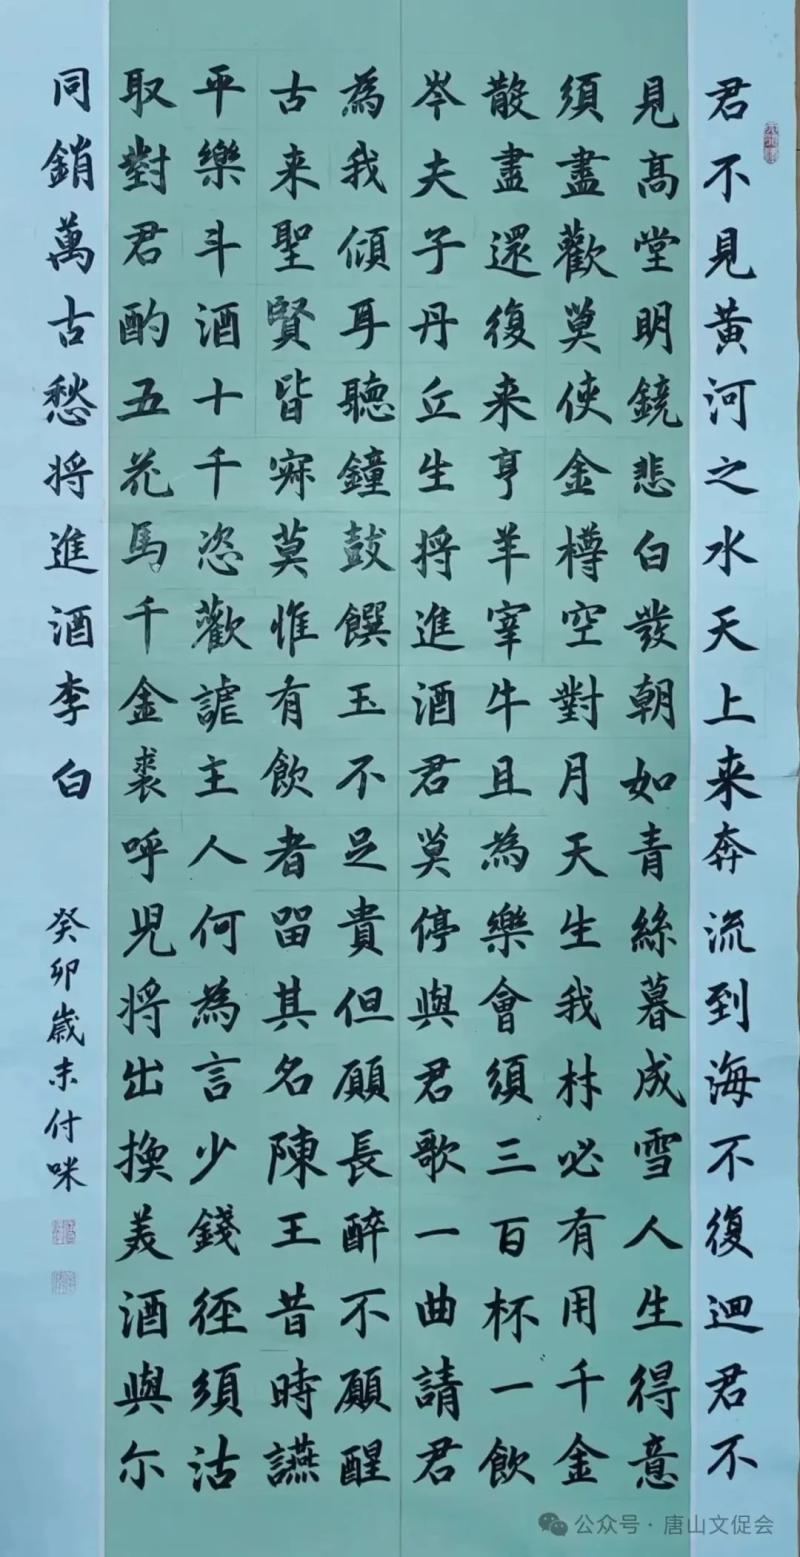 君不見黄河之水天上来奔流到海不復迴君不
見高堂明鏡悲白發朝如青絲暮成雪人生得意
須盡歡莫使金樽空對月天生我材必有用千金
散盡還復来亨羊宰牛且為樂會須三百杯一飲
岑夫子丹丘生将進酒君莫停與君歌一曲請君
為我傾耳聽鐘鼓饌玉不足貴但願長醉不願醒
古来聖賢皆寂莫惟有飲者留其名陳王昔時讌
平樂斗酒十千恣歡謔主人何為言少錢徑須沽
取對君酌五花馬千金裘呼児将出換美酒與尔
同銷萬古愁将進酒李白 癸卯歲末付咪
公众号·唐山文促会